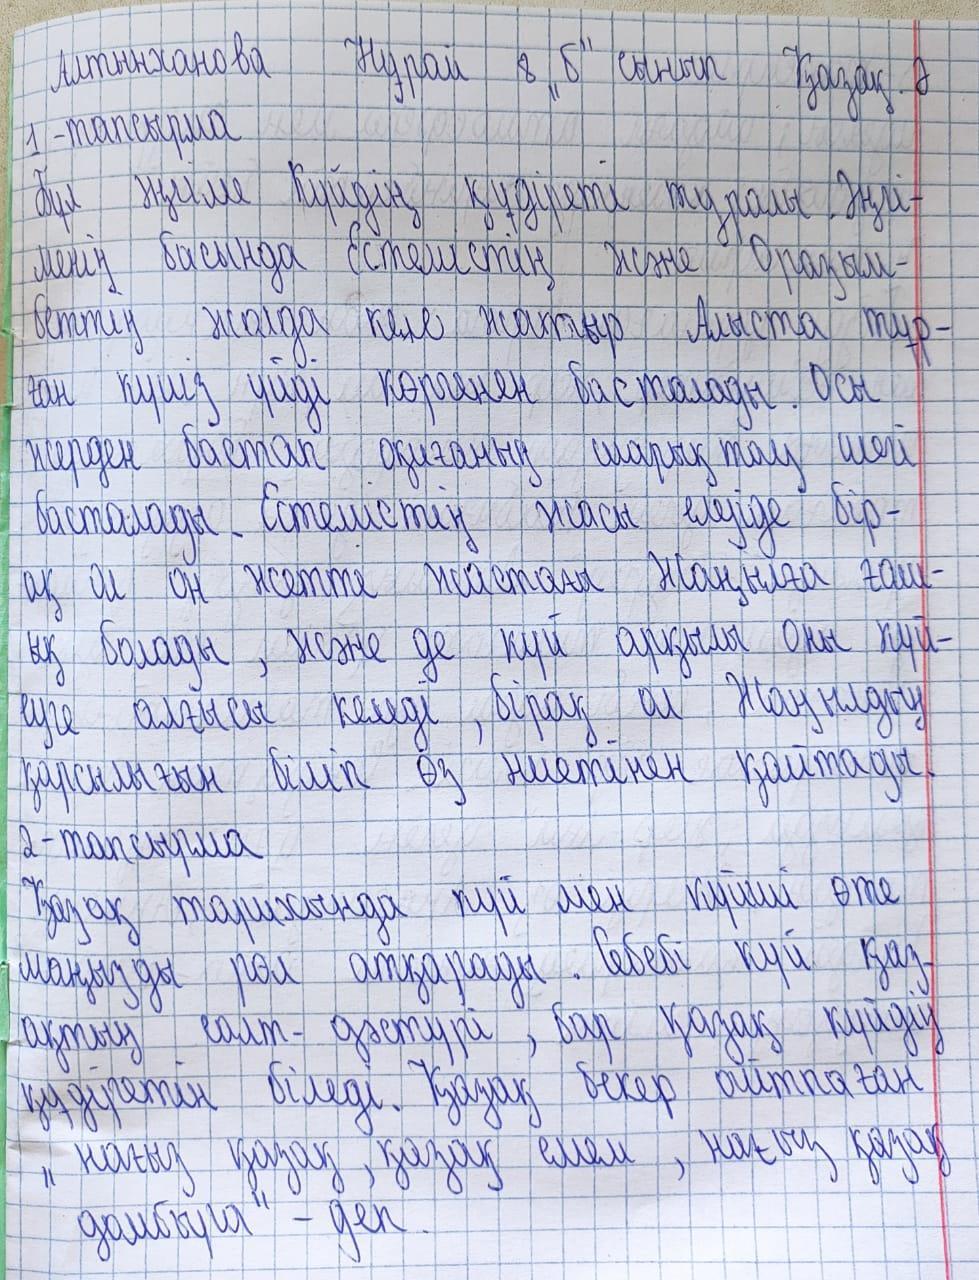 Алтынханова Нұрай 8 „б" сынып Қазақ. Ә
1-тапсырма
Бұл әңгіме күйдің құдіреті туралы. Әңгі-
менің басында Естемістің және Оразым-
беттің жолда келе жатыр Алыста тұр-
ған киіз үйді көргенен басталады. Осы
жерден бастап оқиғаның шарықтау шегі
басталады. Естемістің жасы елуіде бір-
ақ ол он жетте жастағы Жаңылға ғаш-
ық болады, және де күй арқылы оны күй-
еуге алғысы келеді, бірақ ол Жаңылдың
қарсылығын біліп өз ниетінен қайтады.
2-тапсырма
Қазақ тарихында күй мен күйші өте
маңызды рөл атқарады. Себебі күй қаз-
ақтың салт-дәстүрі, бар қазақ күйдің
құдіретін біледі. Қазақ бекер айтпаған
„нағыз қазақ, қазақ емес, нағыз қазақ
домбыра" - деп.